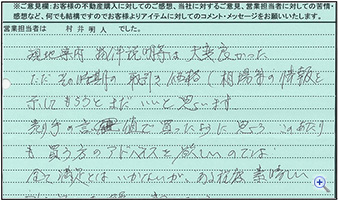 ※ご意見欄:お客様の不動産購入に対してのご感想、当社に対するご意見、営業担当者に対しての苦情・
感想など、何でも結構ですのでお客様よりアイテムに対してのコメント・メッセージをお願いいたします。
営業担当者は 村井明人 でした。
現地案内 物件説明等は大変良かった
ただその時期の取引き価格(相場等の情報を
示してもらうと まだ いいと思います
売り手の言 値で買ったように思う このあたり
も買う方のアドバイスも欲しいのでは
全て満足とはいかないが、ある程度 素晴しい